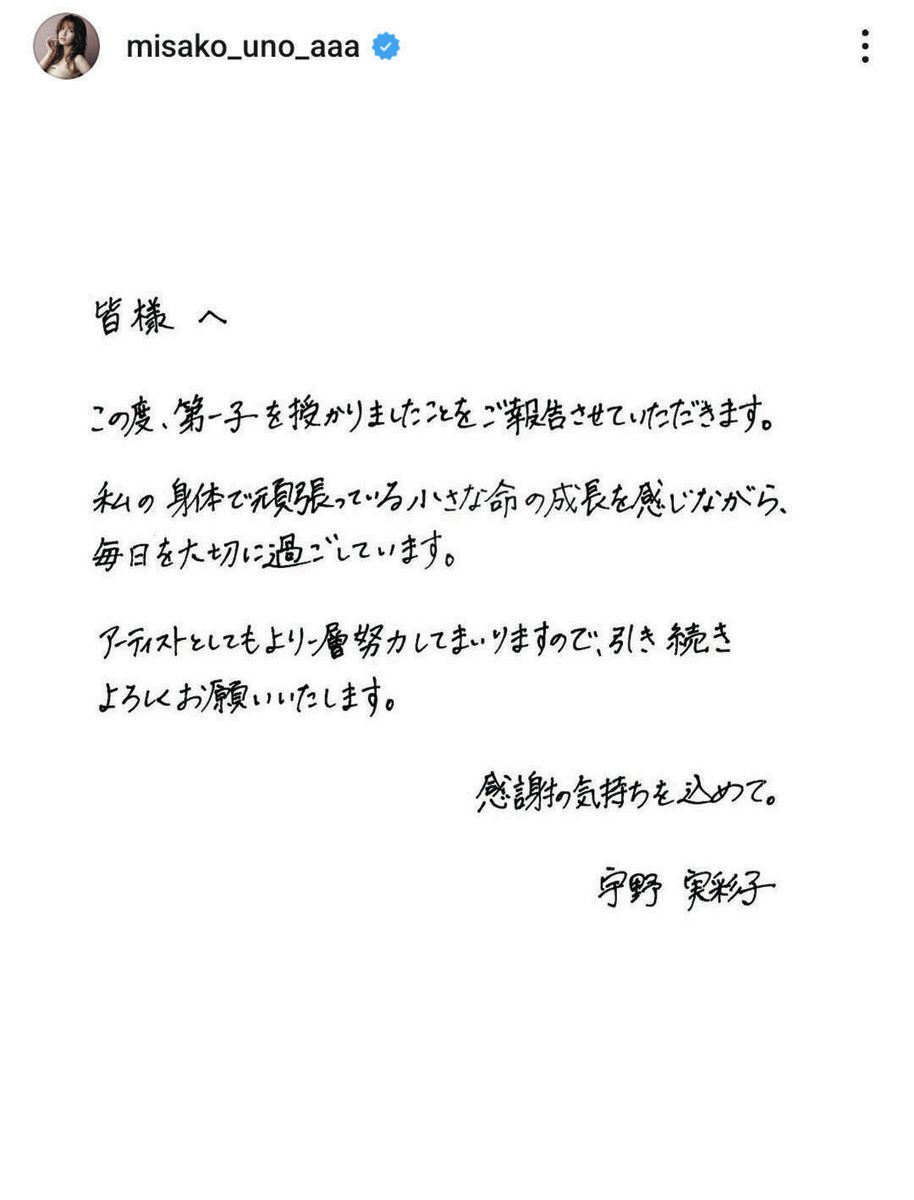 misako_uno_aaa
皆様 へ
この度、第一子を授かりましたことをご報告させていただきます。
私の身体で頑張っている小さな命の成長を感じながら、
毎日を大切に過ごしています。
アーティストとしてもより一層努力してまいりますので、引き続き
よろしくお願いいたします。
感謝の気持ちを込めて。
宇野 実彩子